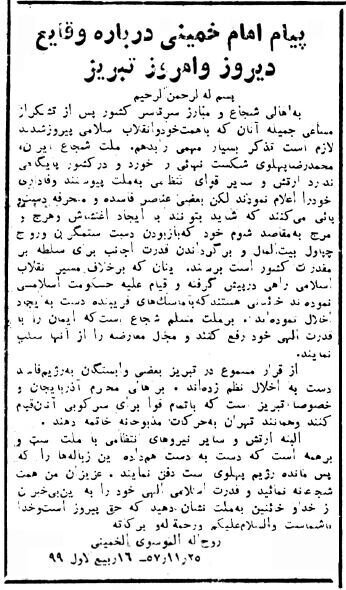 پیام امام خمینی درباره وقایع
دیروز وامروز تبریز
بسم له لرحمن لرحیم
به اهالی شجاع و مبارز سرتاسر کشور پس از تشکر از
مساعی جمیله آنان که باهمت خود و انقلاب سلامی پیروز شدند
لازم است تذکر بسیار مهمی را بدهم. ملت شجاع ایران،
محمدرضا پهلوی شکست نهائی را خورد و در کشور پایگاهی
ندارد ارتش و سایر قوای نتظامی به ملت پیوستند و وفاداری
خود را اعلام نمودند لکن بعضی عناصر فاسده و منحرفه دست و
پائی می‌کنند که شاید بتوانند با ایجاد اغتشاش و هرج و
مرج به مقاصد شوم خود که باز بودن دست ستمگران و رواج
چپاول بیت‌المال و برگرداندن قدرت اجانب برای سلطه بر
مقدرات کشور است برسند. ینان که برخلاف مسیر نقلاب
اسلامی راهی درپیش گرفته و قیام علیه حکومت اسلامی
نموده‌اند خائنانی هستند که با ماسک‌های فریبنده دست به ایجاد
اخلال نموده‌اند. بر ملت مسلم شجاع است که ایمان را با
قدرت الهی خود رفع کنند و مجال معارضه را از آنها سلب
نمایند.
از قرار مسموع در تبریز بعضی وابستگان به رژیم فاسد
دست به اخلال نظم زده‌اند. بر اهالی محترم آذربایجان و
خصوصا تبریز ست که باتمام قوا برای سرکوبی آنان قیام
کنند وهمانند تهران به حرکات مذبوحانه خاتمه دهند.
البته ارتش و سایر نیروهای نتظامی با ملت ست و
برهمه است که دست به دست هم داده این زباله‌ها را که
پس مانده رژیم پهلوی ست دفن نمایند. عزیزان من همت
شجاعانه نمائید و قدرت اسلامی الهی خود را به ین بی‌خبران
از خدا و خائنین به ملت نشان دهید که حق پیروز است و خدا
با شماست والسلام علیکم و رحمة له و برکاته
روح له الموسوی الخمینی
۵۷٫۱۱٫۲۵ـ ۱۶ ربیع لاول ۹۹